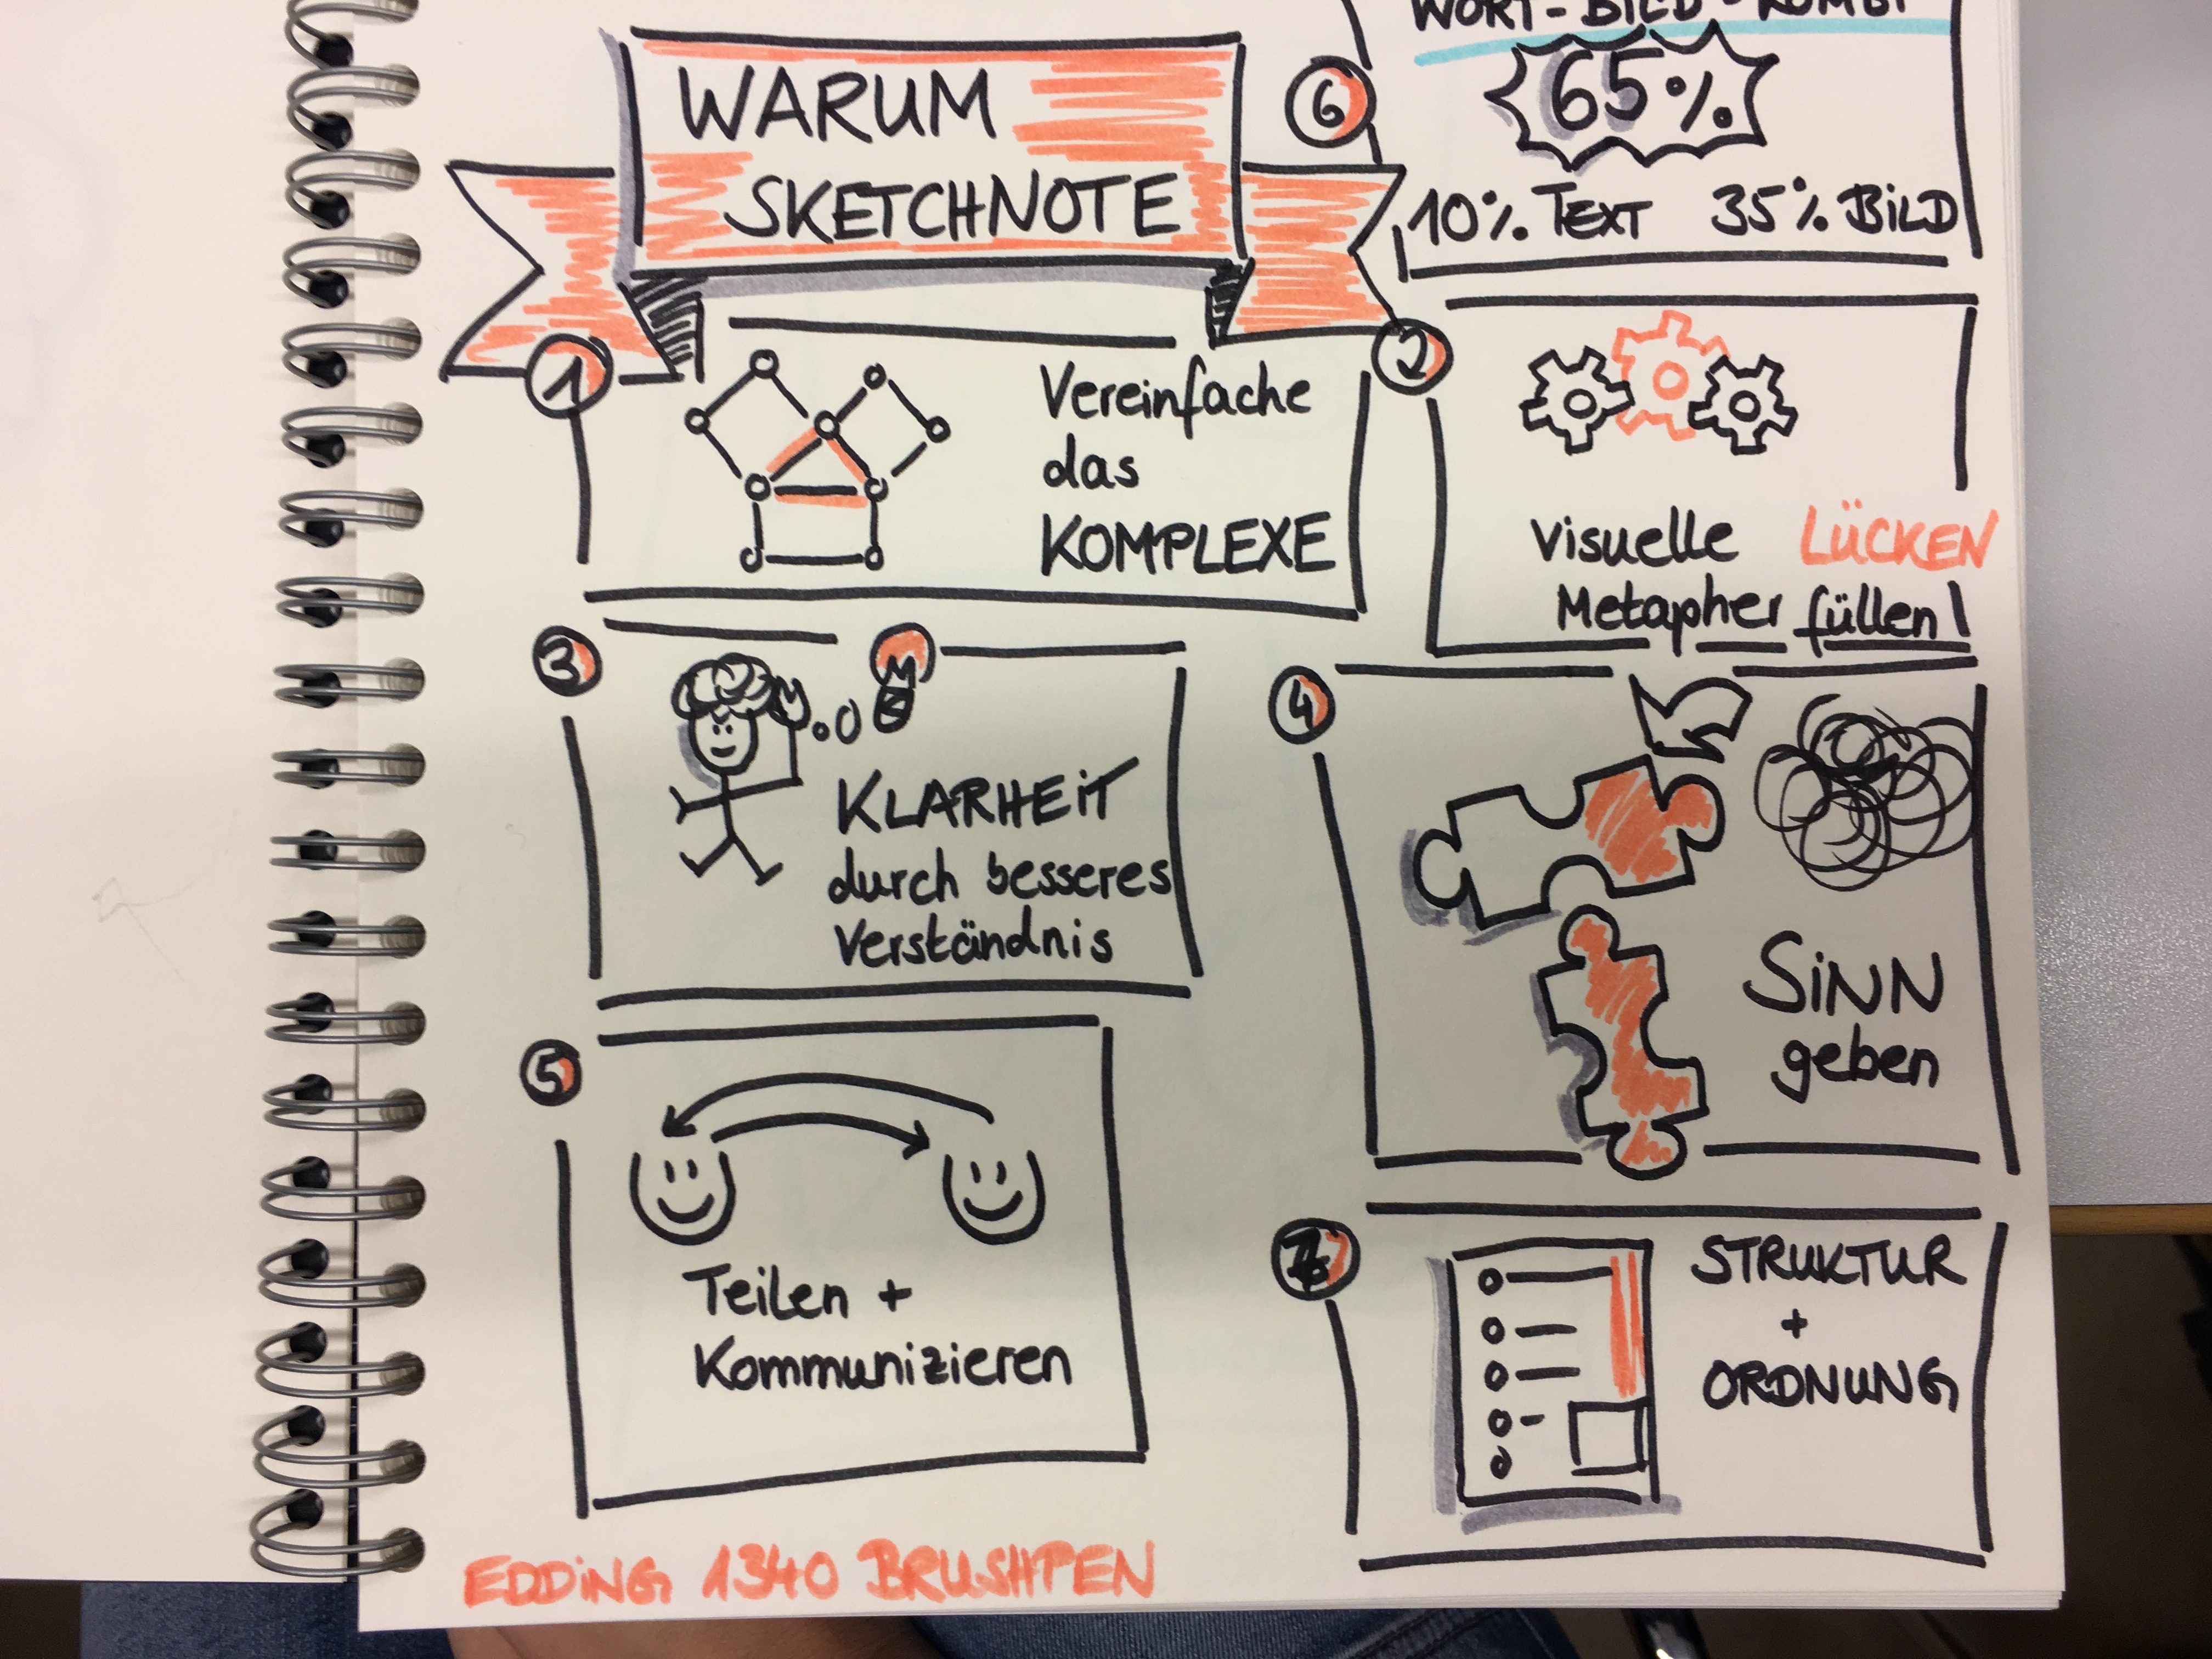 WARUM
SKETCHNOTE
6
WORT-BILD-KOMBI
65%
10% TEXT 35% BILD
1
Vereinfache
das
KOMPLEXE
2
Visuelle LÜCKEN
Metapher füllen!
3
KLARHEIT
durch besseres
Verständnis
4
SINN
geben
5
Teilen +
Kommunizieren
7
STRUKTUR
+
ORDNUNG
EDDING 1340 BRUSHPEN